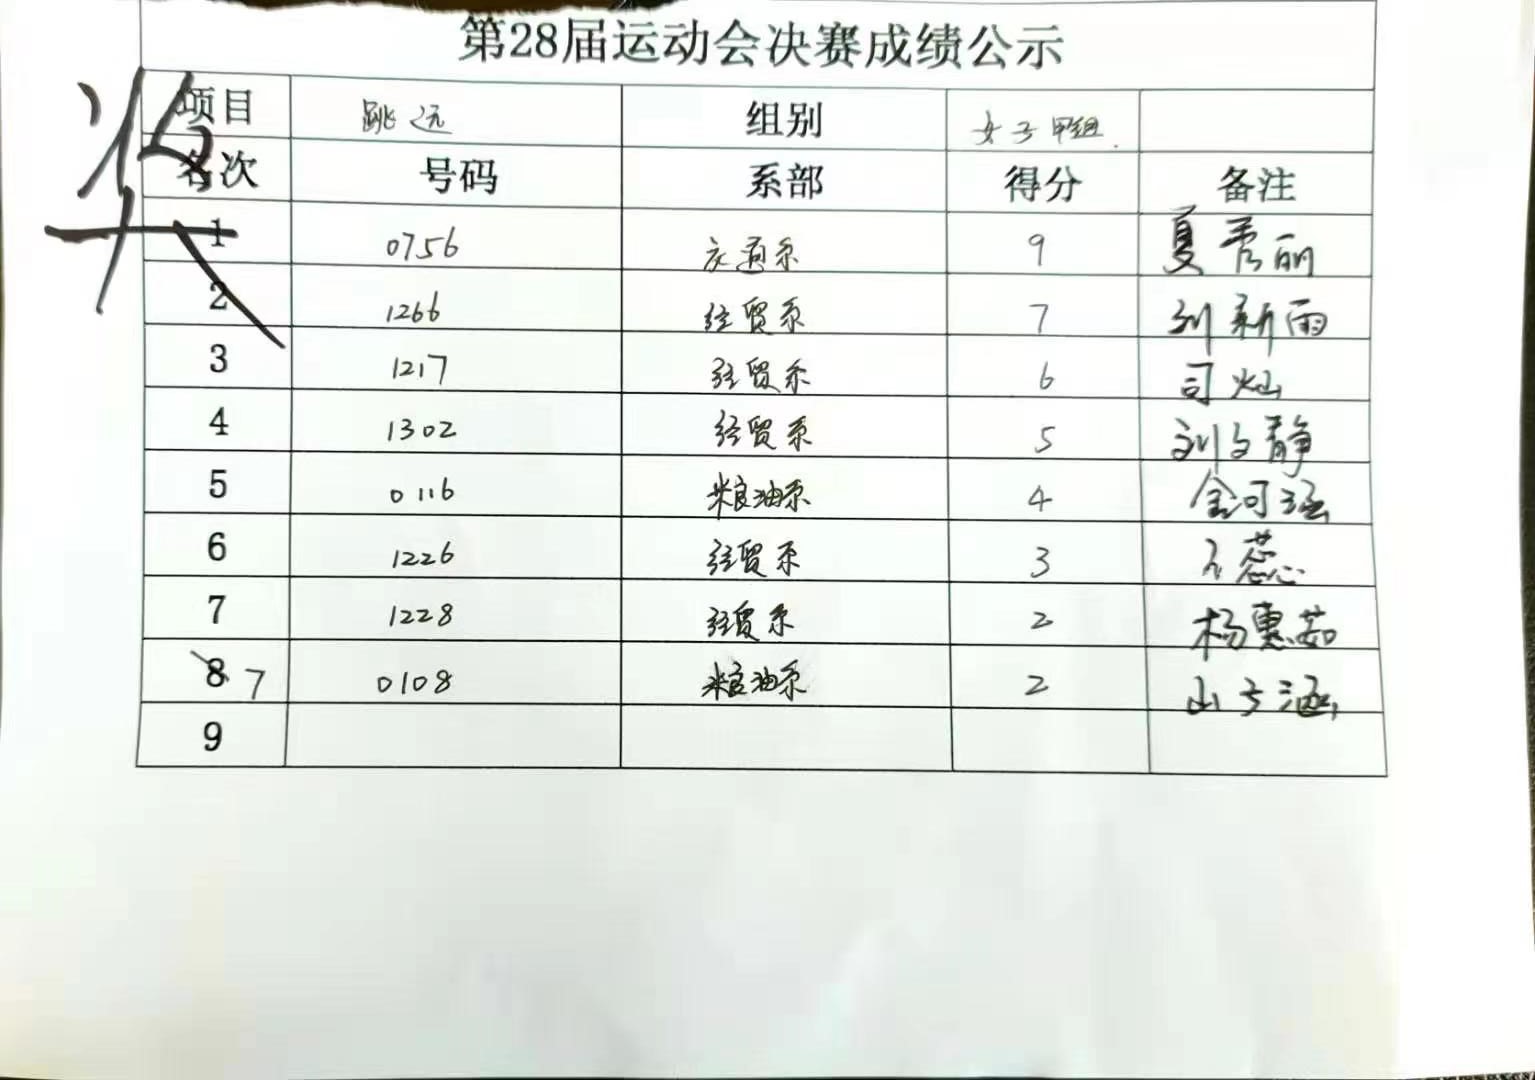 第28届运动会决赛成绩公示
奖
项目 跳远 组别 女子甲组
名次 号码 系部 得分 备注
1 0756 交通系 9 夏秀丽
2 1266 经贸系 7 刘新雨
3 1217 经贸系 6 司灿
4 1302 经贸系 5 刘文静
5 0116 粮油系 4 金河
6 1226 经贸系 3 蕊
7 1228 经贸系 2 杨惠茹
8 7 0108 粮油系 2 山涵
9